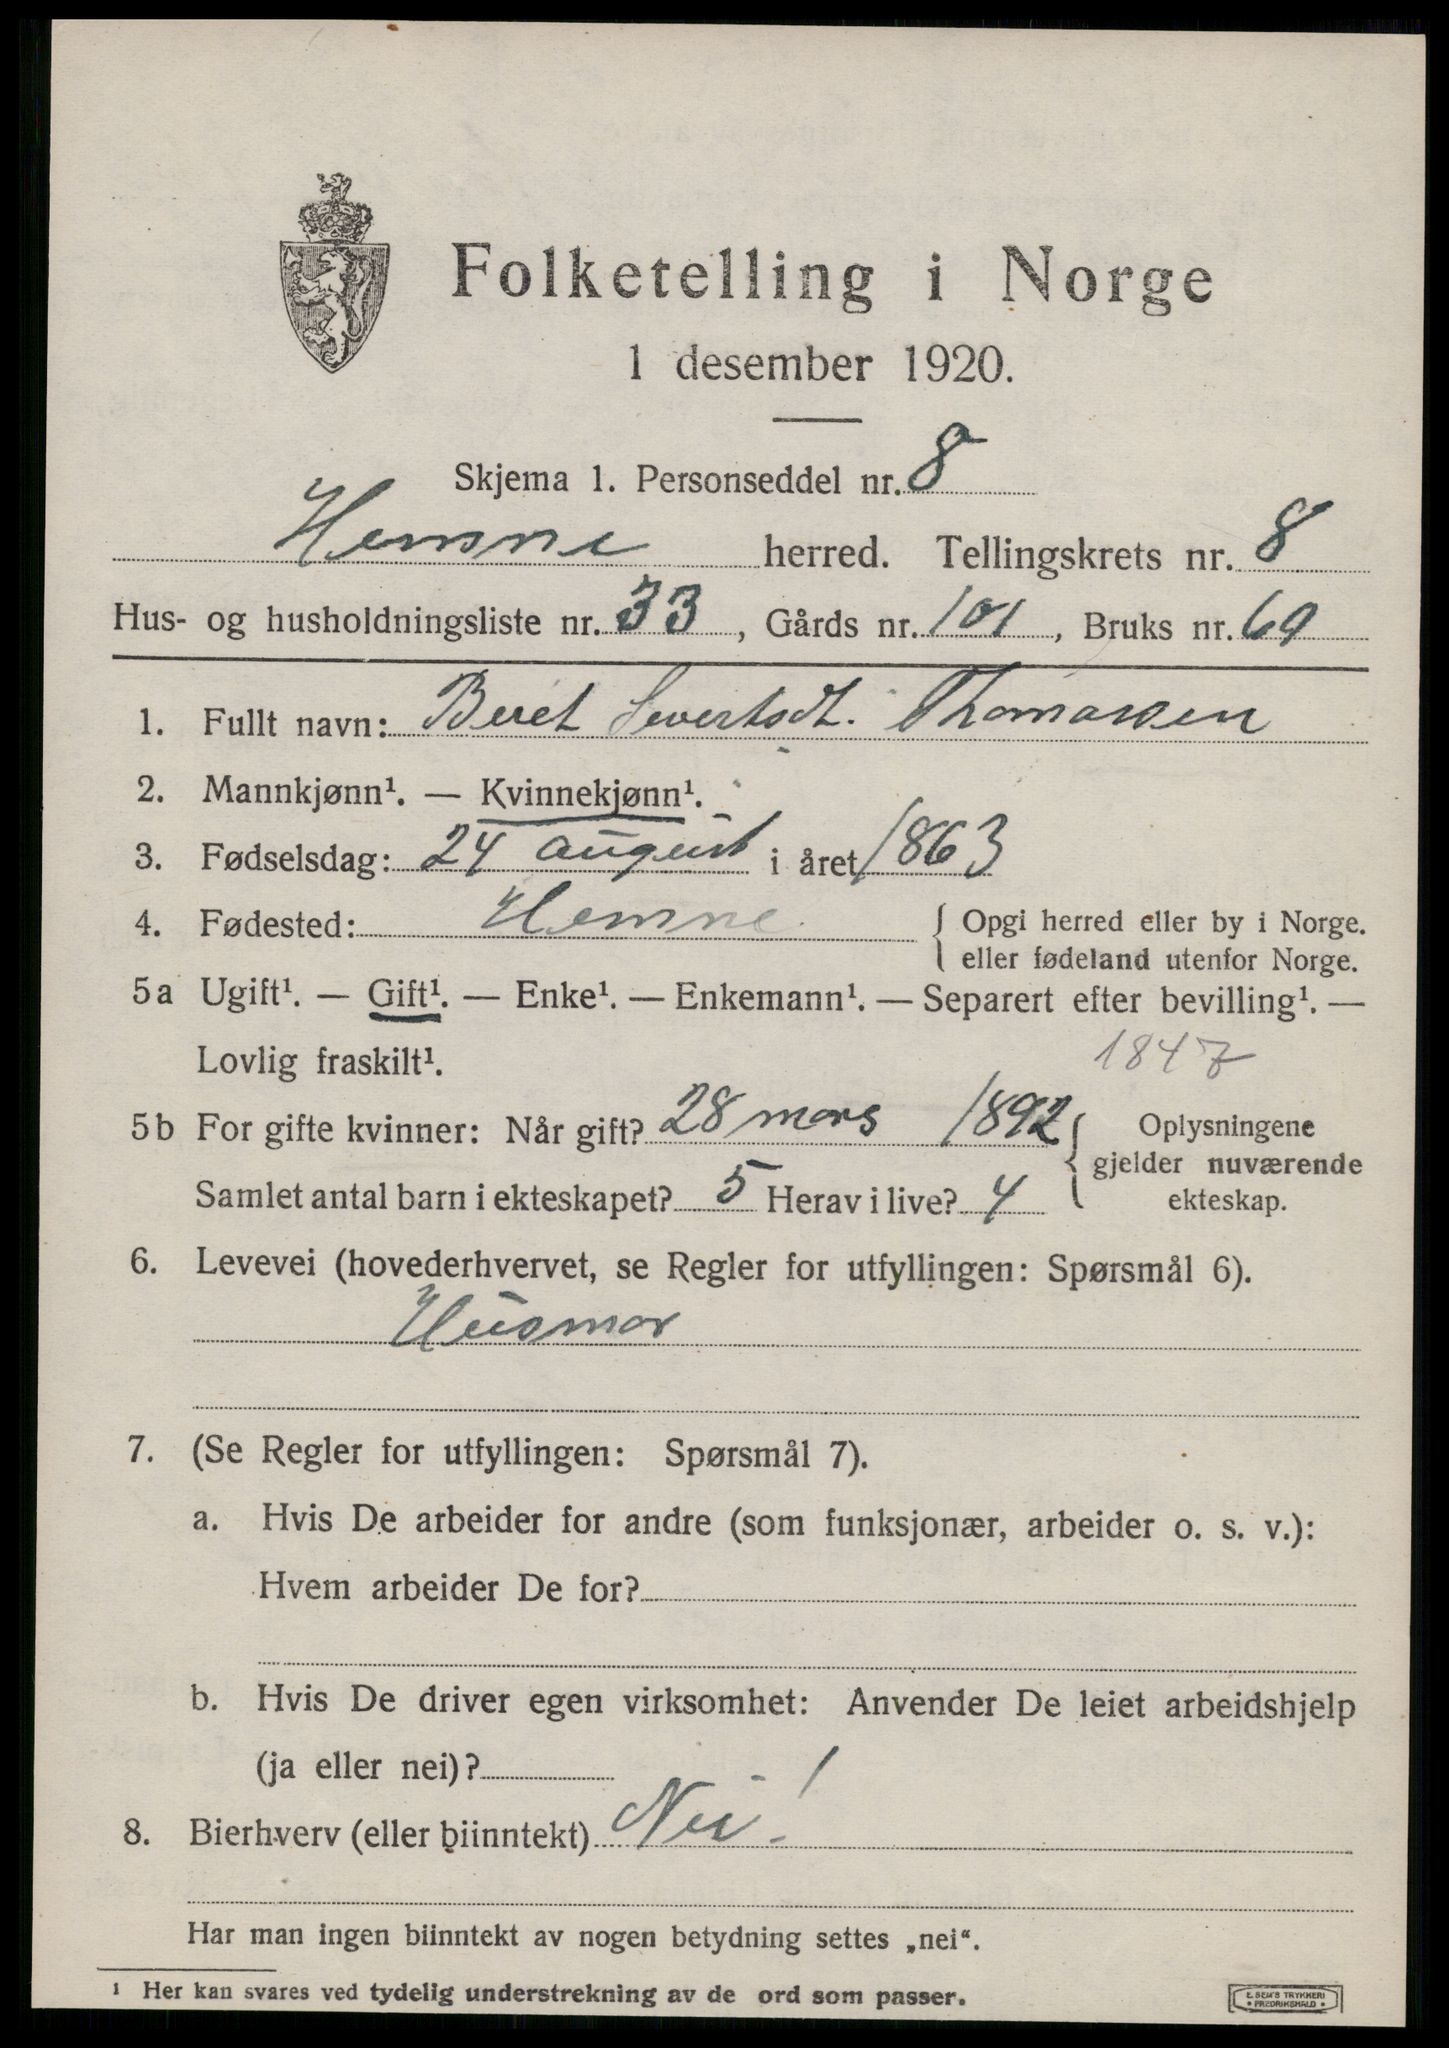 Folketelling i Norge
1 desember 1920.
Skjema 1. Personseddel nr. 8
Hemne herred. Tellingskrets nr. 8
Hus- og husholdningsliste nr. 33, Gårds nr. 101, Bruks nr. 69
1. Fullt navn: Beret Severtsdt. Thomassen
2. Mannkjønn¹. — Kvinnekjønn¹.
3. Fødselsdag: 24 august i året 1863
4. Fødested: Hemne { Opgi herred eller by i Norge.
eller fødeland utenfor Norge.
5a Ugift¹. — Gift¹. — Enke¹. — Enkemann¹. — Separert efter bevilling¹. —
Lovlig fraskilt¹. 1847
5b For gifte kvinner: Når gift? 28 mars 1892 { Oplysningene
gjelder nuværende
Samlet antal barn i ekteskapet? 5 Herav i live? 4 ekteskap.
6. Levevei (hovederhvervet, se Regler for utfyllingen: Spørsmål 6).
Husmor
7. (Se Regler for utfyllingen: Spørsmål 7).
a. Hvis De arbeider for andre (som funksjonær, arbeider o. s. v.):
Hvem arbeider De for?
b. Hvis De driver egen virksomhet: Anvender De leiet arbeidshjelp
(ja eller nei)?
8. Bierhverv (eller biinntekt) Nei!
Har man ingen biinntekt av nogen betydning settes „nei“.
¹ Her kan svares ved tydelig understrekning av de ord som passer.
E. SEM'S TRYKKERI
• FREDRIKSHALD •